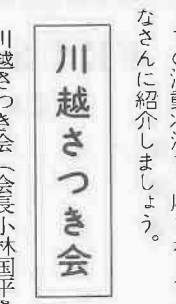 の活動状況
なさんに紹介しましょう。
川越さつき会
川越さつき会(会長小林国平